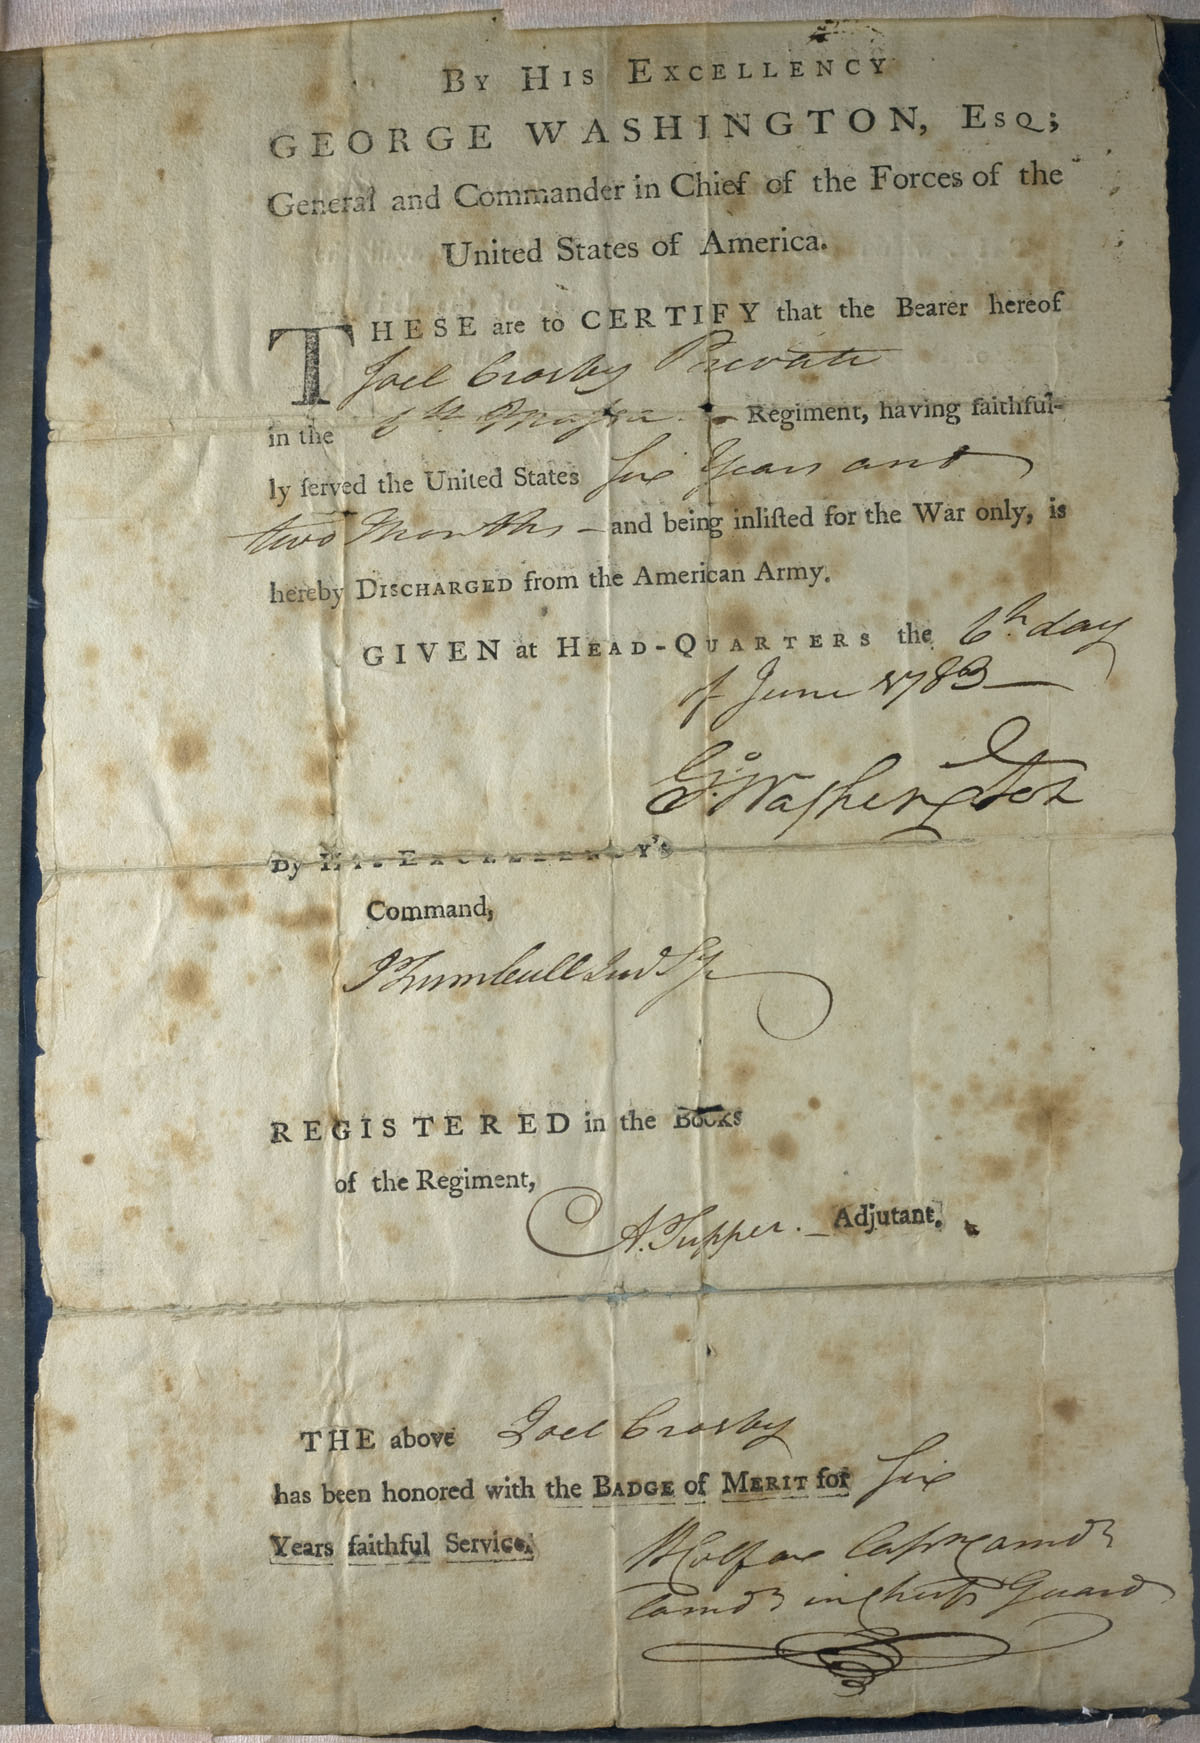 BY HIS EXCELLENCY
GEORGE WASHINGTON, ESQ;
General and Commander in Chief of the Forces of the
United States of America.
THESE are to CERTIFY that the Bearer hereof
Joel Crosby Private
in the 6th Regiment, having faithful-
ly ſerved the United States Six Years and
two Months – and being inliſted for the War only, is
hereby DISCHARGED from the American Army.
GIVEN at HEAD-QUARTERS the 6th day
of June 1783 —
Go: Washington
By HIS EXCELLENCY's
Command,
J Trumbull Jun Sy
REGISTERED in the Books
of the Regiment,
A. Tupper. – Adjutant.
THE above Joel Crosby
has been honored with the BADGE of MERIT for Six
Years faithful Service.
B Colfax Capt Comdt
Comdr in Chiefs Guard